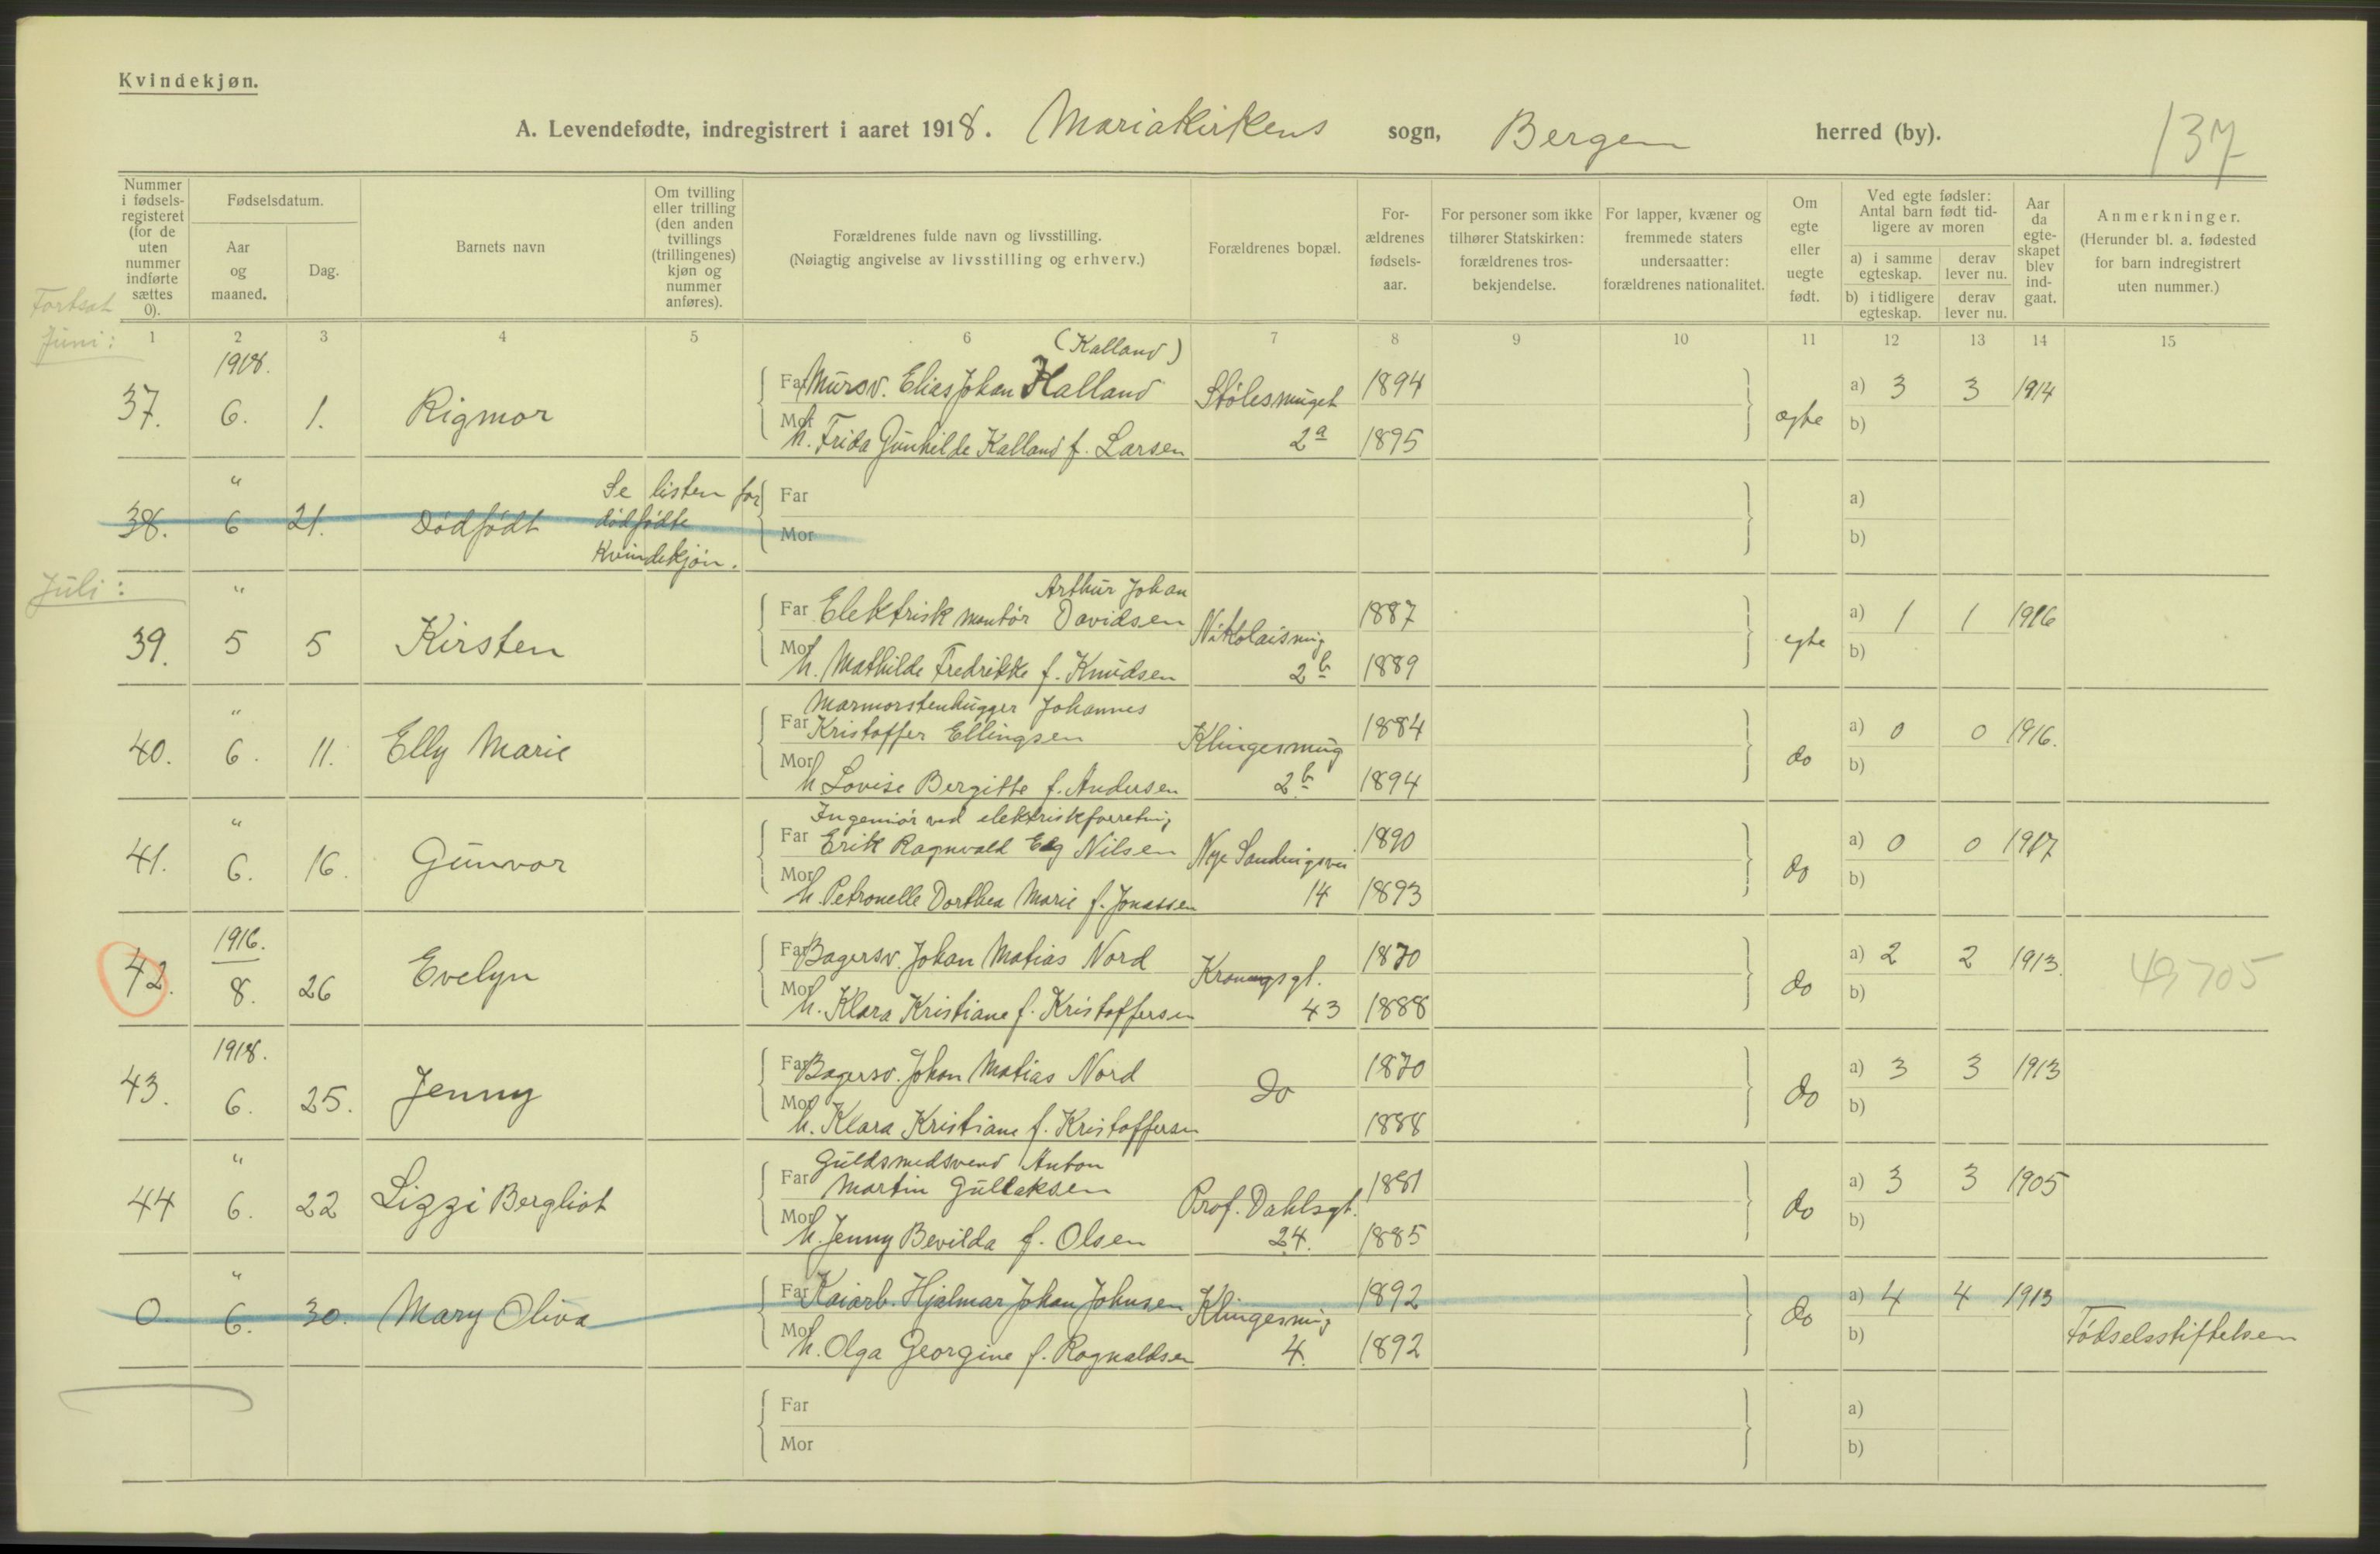 Kvindekjøn.
A. Levendefødte, indregistrert i aaret 1918. Mariakirkens sogn, Bergen herred (by).
137
Nummer i fødsels-registeret (for de uten nummer indførte sættes 0).
Fødselsdatum.
Aar og maaned.
Dag.
Barnets navn
Om tvilling eller trilling (den anden tvillings (trillingenes) kjøn og nummer anføres).
Forældrenes fulde navn og livsstilling.
(Nøiagtig angivelse av livsstilling og erhverv.)
Forældrenes bopæl.
For-ældrenes fødsels-aar.
For personer som ikke tilhører Statskirken: forældrenes tros-bekjendelse.
For lapper, kvæner og fremmede staters undersaatter: forældrenes nationalitet.
Om egte eller uegte født.
Ved egte fødsler: Antal barn født tid-ligere av moren
a) i samme egteskap.
derav lever nu.
b) i tidligere egteskap.
derav lever nu.
Aar da egte-skapet blev ind-gaat.
Anmerkninger.
(Herunder bl. a. fødested for barn indregistrert uten nummer.)
Fortsat
Juni:
1 2 3 4 5 6 7 8 9 10 11 12 13 14 15
1918.
(Kalland)
37. 6. 1. Rigmor Far Mursv. Elias Johan Halland Stølesmuget 1894 egte a) 3 3 1914
Mor h. Frida Gunhilde Kalland f. Larsen 2a 1895 b)
"
38. 6 21. Dødfødt Se listen for dødfødte Kvindekjøn. Far a)
Mor b)
Juli:
"
Arthur Johan
39. 5 5 Kirsten Far Elektrisk montør Davidsen Nikolaismug 1887 egte a) 1 1 1916
Mor h. Mathilde Fredrikke f. Knudsen 2b 1889 b)
"
Marmorstenhugger Johannes
40. 6. 11. Elly Marie Far Kristoffer Ellingsen Klingesmug 1884 do a) 0 0 1916.
Mor h Lovise Bergitte f. Andersen 2b 1894 b)
"
Ingeniør ved elektriskforretning
41. 6. 16. Gunvor Far Erik Ragnvald Nilsen Nye Sandvigsvei 1890 do a) 0 0 1917
Mor h. Petronelle Dorthea Marie f. Jonassen 14 1893 b)
1916.
42. 8. 26 Evelyn Far Bagersv. Johan Matias Nord Kroningsgt. 1870 do a) 2 2 1913. 49705
Mor h. Klara Kristiane f. Kristoffersen 43 1888 b)
1918.
43. 6. 25. Jenny Far Bagersv. Johan Matias Nord do 1870 do a) 3 3 1913
Mor h. Klara Kristiane f. Kristoffersen 1888 b)
"
Guldsmedsvend Anton
44 6. 22 Lizzi Bergliot Far Martin Gullaksen Prof. Dahlsgt. 1881 do a) 3 3 1905
Mor h. Jenny Bevilda f. Olsen 24. 1885 b)
"
0. 6. 30. Mary Oliva Far Kaiarb. Hjalmar Johan Johnsen Klingesmug 1892 do a) 4 4 1913
Mor h. Olga Georgine f. Ragnaldsen 4. 1892 b) Fødselsstiftelsen
Far a)
Mor b)